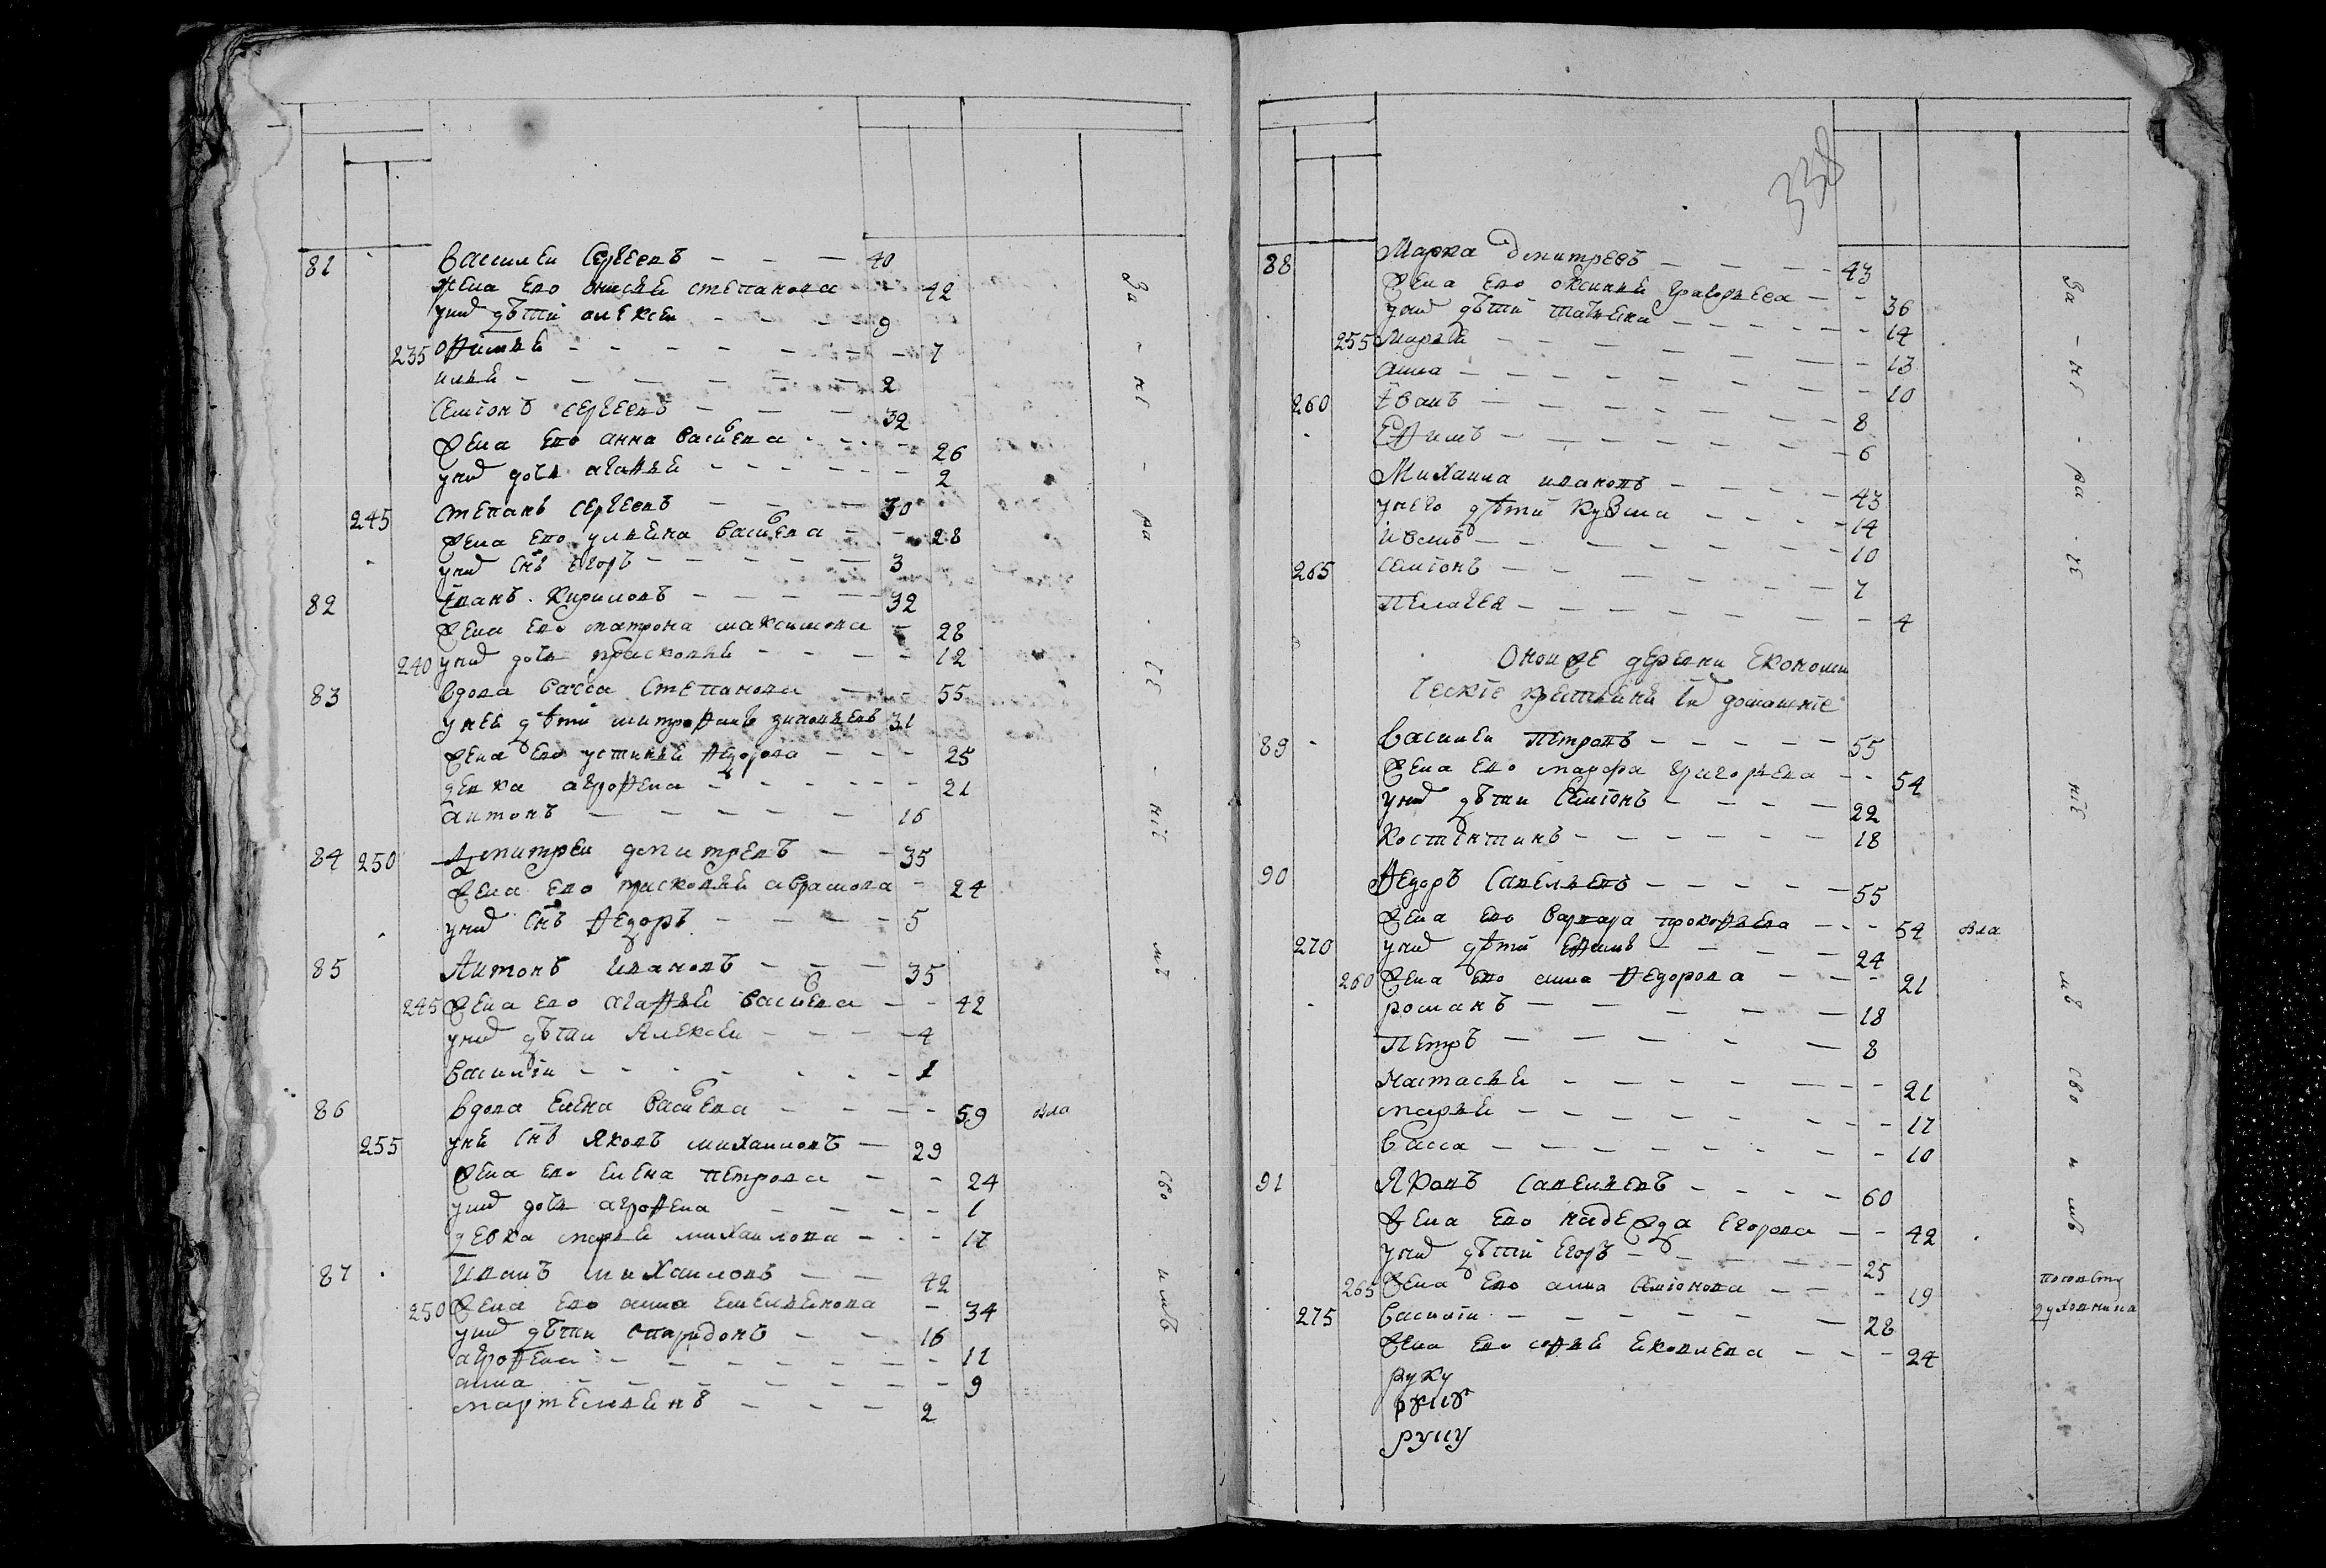 81 Василеи Сергеевъ 40
жена ево онисья степанова 42
уних дѣти алексеи 9
235 Офимья 7
илья 2
Семіонъ сергеевъ 32
Жена ево анна василева 26
уних дочь агафья 2
245 степанъ сергеевъ 30
Жена ево ульяна василева 28
уних снъ егоръ 3
82 Іванъ Кириловъ 32
Жена ево матрона максимова 28
240 уних дочь прасковья 12
83 вдова васса Степанова 55
уней дѣти митрофанъ зиновьевъ 31
Жена ево устинья федорова 25
девка агрофена 21
антонъ 16
84 250 Дмитреи дмитревъ 35
Жена ево прасковья аврамова 24
уних снъ федоръ 5
85 Антонъ Ивановъ 35
245 Жена ево агафья василева 42
уних дѣти Алексеи 4
василіи 1
86 вдова елена василева 59 вла
255 уней снъ Яковъ михаиловъ 29
Жена ево елена петрова 24
уних дочь агрофена 1
девка марья михаилова 17
87 Иванъ михаиловъ 42
250 Жена ево анна емельянова 34
уних дѣти спиридонъ 16
агрофена 11
анна 9
мартемьянъ 2
За - нѣ - ра - че - ніе мъ сво и мъ
338
88 Марка Дмитревъ 43
Жена ево оксинья григорьева 36
уних дѣти татьена 14
255 Марья 13
анна 10
260 Іванъ 8
Ефимъ 6
Михаила ивановъ 43
унего дѣти Кузма 14
Иванъ 10
265 семіонъ 7
Пелагея 4
Оноиже деревни Економи
ческіе крестьяня іх домашніе
89 Василеи Петровъ 55
Жена ево марфа григорьева 54
уних дѣти Семіонъ 22
Костентинъ 18
90 Федоръ Савельевъ 55
Жена ево варвара прокофьева 54 вла
270 уних дѣти ефимъ 24
260 Жена ево анна федорова 21
романъ 18
Петръ 8
Настасья 21
марья 17
васса 10
91 Яковъ Савельевъ 60
Жена ево надежда егорова 42
уних дѣти егоръ 25
265 Жена ево анна семіонова 19
275 василіи 28
Жена ево софья яковлева 24
руку
За - нѣ - ра - че ніе мъ сво и мъ
посовету
духовника